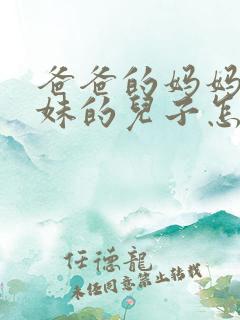 爸爸的妈妈
妹的兒子怎
任德龍
未经同意禁止转载